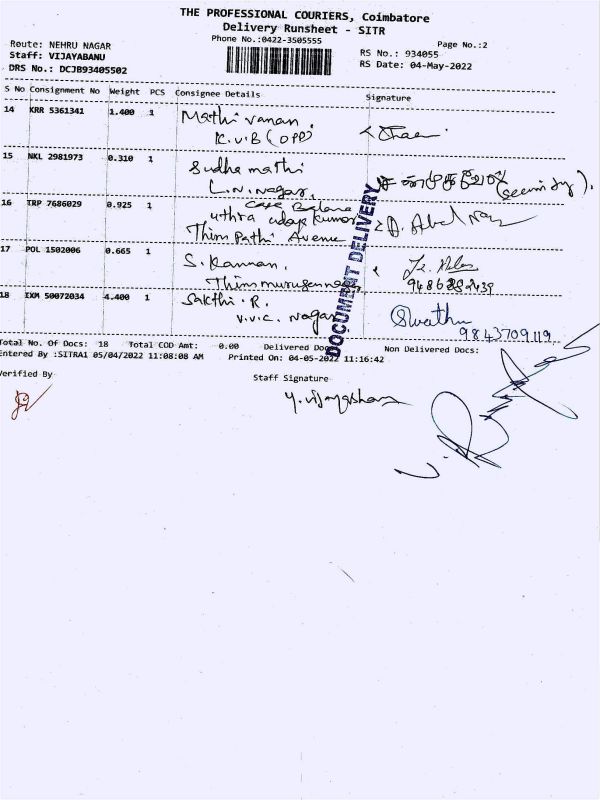 THE PROFESSIONAL COURIERS, Coimbatore
Delivery Runsheet - SITR
Phone No.:0422-3505555
Page No.:2
Route: NEHRU NAGAR
RS No.: 934055
Staff: VIJAYABANU
RS Date: 04-May-2022
DRS No.: DCJB93405502
S No Consignment No Weight PCS Consignee Details Signature
14 KRR 5361341 1.400 1 Mathivanan
K.V.B (OPP)
15 NKL 2981973 0.310 1 Sudha mathi
L.N. Nagar. (security).
16 TRP 7686029 0.925 1
uthra udaya kumar
Thiru pathi Avenue
17 POL 1502006 0.665 1 S. Kannan.
18 IXM 50072034 4.400 1 Sakthi . R. Swathi
V.V.C. Nagar 9843709119
DOCUMENT DELIVERY
Total No. Of Docs: 18 Total COD Amt: 0.00 Delivered Non Delivered Docs:
Entered By :SITRA1 05/04/2022 11:08:08 AM Printed On: 04-05-2022 11:16:42
Verified By
Staff Signature